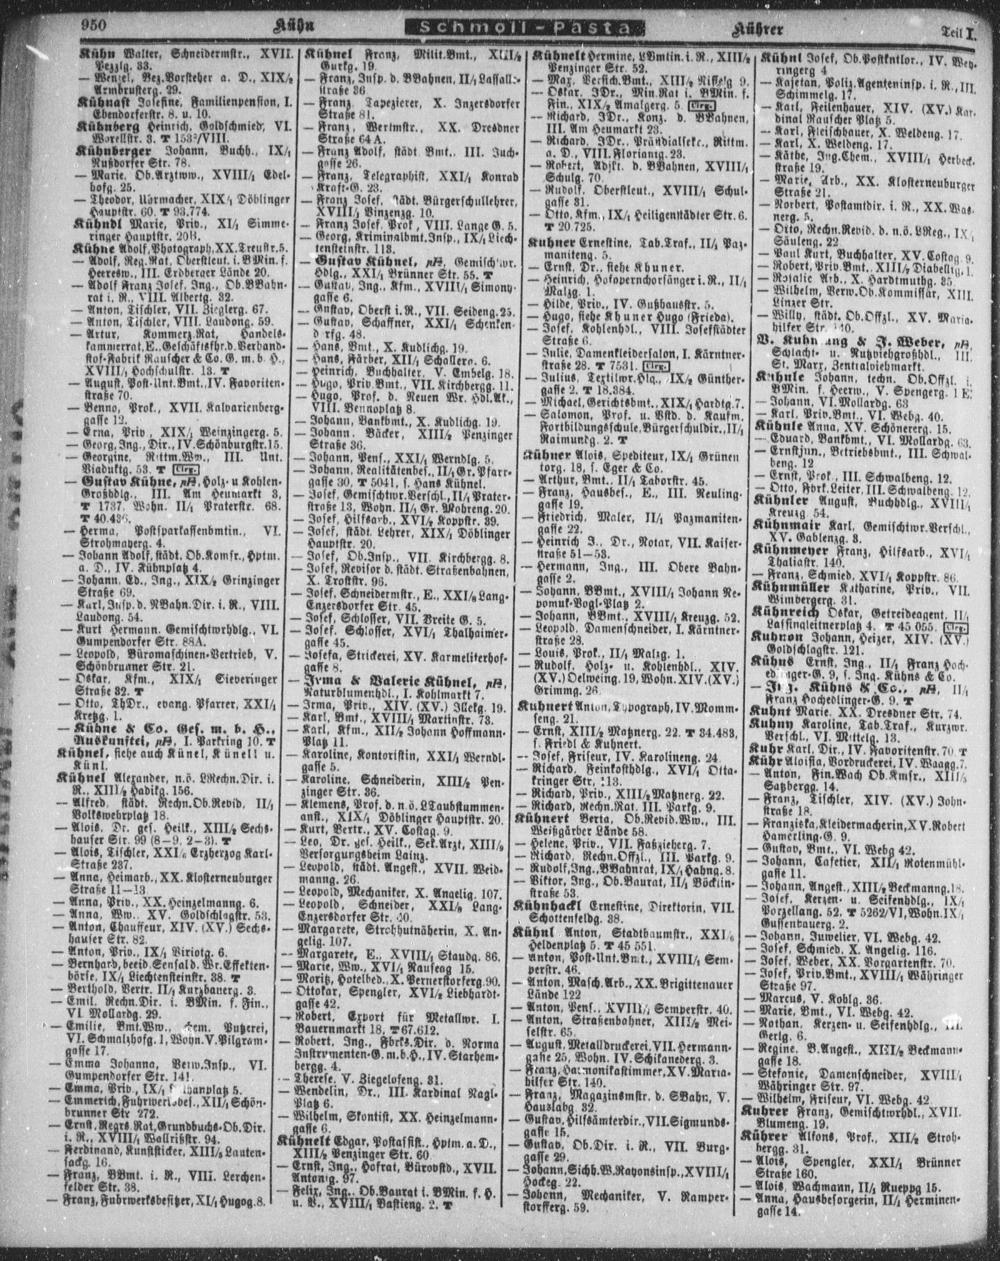 950 Kühn Schmoll-Pasta Kührer Teil I.
Kühn Walter, Schneidermstr., XVII.
Pezzlg. 33.
— Wenzel, Bez.Vorsteher a. D., XIX/2
Armbrusterg. 29.
Kühnast Josefine, Familienpension, I.
Ebendorferstr. 8. u. 10.
Kühnberg Heinrich, Goldschmied, VI.
Kühnberger Johann, Buchh., IX/1
Nußdorfer Str. 78.
— Marie, Ob.Arztww., XVIII/1 Edel-
hofg. 25.
— Theodor, Uhrmacher, XIX/1 Döblinger
Hauptstr. 60. T 93.774.
Kühndl Marie, Priv., XI/1 Simme-
ringer Hauptstr. 20B.
Kühne Adolf, Photograph, XX. Treustr. 5.
— Adolf, Reg.Rat, Oberstleut. i. BMin. f.
Heeresw., III. Erdberger Lände 20.
— Adolf Franz Josef, Ing., Ob.BBahn-
rat i. R., VIII. Albertg. 32.
— Anton, Tischler, VII. Zieglerg. 67.
— Anton, Tischler, VIII. Laudong. 59.
— Artur, Kommerz.Rat, Handels-
kammerrat, E., Geschäftsfhr. d. Verband-
stof-Fabrik Rauscher & Co. G. m. b. H.,
XVIII/1 Hochschulstr. 13. T
— August, Post-Unt.Bmt., IV. Favoriten-
straße 70.
— Benno, Prok., XVII. Kalvarienberg-
gasse 12.
— Erna, Priv., XIX/1 Weinzingerg. 5.
— Georg, Ing., Dir., IV. Schönburgstr. 15.
— Georgine, Rittm.Ww., III. Unt.
Viaduktg. 53. T Clrg.
— Gustav Kühne, pA, Holz- u. Kohlen-
Großhdlg., III. Am Heumarkt 3,
T 1737. Wohn. II/1 Praterstr. 68.
— Herma, Postsparkassenbmtin., VI.
Strohmayerg. 4.
— Johann Adolf, städt. Ob.Komsr., Hptm.
a. D., IV. Kühnplatz 4.
— Johann Ed., Ing., XIX/2 Grinzinger
Straße 69.
— Karl, Insp. d. NBahn.Dir. i. R., VIII.
Laudong. 54.
— Kurt Hermann, Gemischtwrhdlg., VI.
Gumpendorfer Str. 88A.
— Leopold, Büromaschinen-Vertrieb, V.
Schönbrunner Str. 21.
— Oskar, Kfm., XIX/1 Sieveringer
Straße 32. T
— Otto, ThDr., evang. Pfarrer, XXI/1
Kretzg. 1.
— Kühne & Co. Ges. m. b. H.,
Auskunftei, pA, I. Parkring 10. T
Kühnel, siehe auch Künel, Künell u.
Künl.
Kühnel Alexander, n.ö. LRechn.Dir. i.
R., XIII/2 Hadikg. 156.
— Alfred, städt. Rechn.Ob.Revid., II/1
Volkswehrplatz 18.
— Alois, Dr. ges. Heilk., XIII/2 Sechs-
hauser Str. 99 (8—9, 2—3). T
— Alois, Tischler, XXI/1 Erzherzog Karl-
Straße 237.
— Anna, Heimarb., XX. Klosterneuburger
Straße 11—13.
— Anna, Priv., XX. Heinzelmanng. 6.
— Anna, Ww., XV. Goldschlagstr. 53.
— Anton, Chauffeur, XIV. (XV.) Sechs-
hauser Str. 82.
— Anton, Priv., IX/1 Viriotg. 6.
— Bernhard, beeid. Sensal d. Wr. Effekten-
börse, IX/1 Liechtensteinstr. 38. T
— Berthold, Vertr. II/1 Kurzbauerg. 3.
— Emil, Rechn.Dir. i. BMin. f. Fin.,
VI. Mollardg. 29.
— Emilie, Bmt.Ww., chem. Putzerei,
VI. Schmalzhofg. 1, Wohn. V. Pilgram-
gasse 17.
— Emma Johanna, Verw.Insp., VI.
Gumpendorfer Str. 141.
— Emma, Priv., IX/1 5.
— Emmerich, Fuhrwerksbes., XII/1 Schön-
brunner Str. 272.
— Ernst, Regs.Rat, Grundbuchs-Ob.Dir.
i. R., XVIII/1 Wallrißstr. 94.
— Ferdinand, Kunststicker, XIII/1 Lauten-
sackg. 16.
— Franz, BBmt. i. R., VIII. Lerchen-
felder Str. 38.
— Franz, Fuhrwerksbesitzer, XI/1 Hugog. 8.
Kühnel Franz, Milit.Bmt., XIII/2
Gurkg. 19.
— Franz, Insp. d. BBahnen, II/2 Lassalle-
straße 36
— Franz, Tapezierer, X. Inzersdorfer
Straße 81.
— Franz, Werkmstr., XX. Dresdner
Straße 64 A.
— Franz Adolf, städt. Bmt., III. Juch-
gasse 26.
— Franz, Telegraphist, XXI/1 Konrad
Kraft-G. 23.
— Franz Josef, städt. Bürgerschullehrer,
XVIII/1 Vinzenzg. 10.
— Franz Josef, Prof., VIII. Lange G. 5.
— Georg, Kriminalbmt.Insp., IX/1 Liech-
tensteinstr. 118.
— Gustav Kühnel, pA, Gemischtwr.
Hdlg., XXI/1 Brünner Str. 55. T
— Gustav, Ing., Kfm., XVIII/1 Simony-
gasse 6.
— Gustav, Oberst i. R., VII. Seideng. 25.
— Gustav, Schaffner, XXI/1 Schenken-
rfg. 48.
— Hans, Bmt., X. Kudlichg. 19.
— Hans, Färber, XII/1 Schallerg. 6.
— Heinrich, Buchhalter, V. Embelg. 18.
— Hugo, Priv.Bmt., VII. Kirchbergg. 11.
— Hugo, Prof. d. Neuen Wr. Hdl.Ak.,
VIII. Bennoplatz 8.
— Johann, Bankbmt., X. Kudlichg. 19.
— Johann, Bäcker, XIII/1 Penzinger
Straße 36.
— Johann, Pens., XXI/1 Werndlg. 5.
— Johann, Realitätenbes., II/1 Gr. Pfarr-
gasse 30, T 5041, s. Hans Kühnel.
— Josef, Gemischtwr.Verschl., II/1 Prater-
straße 13, Wohn. II/1 Gr. Mohreng. 20.
— Josef, Hilfsarb., XVI/2 Koppstr. 39.
— Josef, städt. Lehrer, XIX/1 Döblinger
Hauptstr. 20.
— Josef, Ob.Insp., VII. Kirchbergg. 8.
— Josef, Revisor d. städt. Straßenbahnen,
X. Troststr. 96.
— Josef, Schneidermstr., E., XXI/8 Lang-
Enzersdorfer Str. 45.
— Josef, Schlosser, VII. Breite G. 5.
— Josef, Schlosser, XVI/1 Thalhaimer-
gasse 45.
— Josefa, Strickerei, XV. Karmeliterhof-
gasse 8.
— Irma & Valerie Kühnel, pA,
Naturblumenhdl., I. Kohlmarkt 7.
— Irma, Priv., XIV. (XV.) Illekg. 19.
— Karl, Bmt., XVI/1 Martinstr. 73.
— Karl, Kfm., XII/2 Johann Hoffmann-
Platz 11.
— Karoline, Kontoristin, XXI/1 Werndl-
gasse 5.
— Karoline, Schneiderin, XIII/2 Pen-
zinger Str. 36.
— Klemens, Prof. d. n.ö. LTaubstummen-
anst., XIX/1 Döblinger Hauptstr. 20.
— Kurt, Vertr., XV. Costag. 9.
— Leo, Dr. ges. Heilk., Sek.Arzt, XIII/8
Versorgungsheim Lainz.
— Leopold, städt. Angest., XVII. Weid-
manng. 26.
— Leopold, Mechaniker, X. Angelig. 107.
— Leopold, Schneider, XXI/8 Lang-
Enzersdorfer Str. 40.
— Margarete, Strohhutnäherin, X. An-
gelig. 107.
— Margarete, E., XVIII/1 Staudg. 86.
— Marie, Ww., XVI/1 Nauseag. 15.
— Moritz, Hotelbed., X. Pernerstorferg. 90.
— Ottokar, Spengler, XVI/2 Liebhardt-
gasse 42.
— Robert, Export für Metallwr. I.
Bauernmarkt 18, T 67.612.
— Robert, Ing., Fbrks.Dir. d. Norma
Instrumenten-G. m. b. H., IV. Starhem-
bergg. 4.
— Therese, V. Ziegelofeng. 31.
— Wendelin, Dr., III. Kardinal Nagl-
Platz 6.
— Wilhelm, Skontist, XX. Heinzelmann-
gasse 6.
Kühnelt Edgar, Postassist., Hptm. a. D.,
XIII/2 Penzinger Str. 60.
— Ernst, Ing., Hofrat, Bürovstd., XVII.
Antonig. 97.
— Felix, Ing., Ob.Baurat i. BMin. f. H.
u. V., XVIII/1 Bastieng. 2. T
Kühnelt Hermine, LBmtin. i. R., XIII/2
Penzinger Str. 52.
— Max, Versich.Bmt., XIII/2 Nisselg. 9.
— Oskar, JDr., Min.Rat i. BMin. f.
Fin., XIX/2 Amalgerg. 5. Clrg.
— Richard, JDr., Konz. d. BBahnen,
III. Am Heumarkt 23.
— Richard, JDr., Präsidialsekr., Rittm.
a. D., VIII. Florianig. 23.
— Robert, Adjkt. d. BBahnen, XVIII/1
Schulg. 70.
— Rudolf, Oberstleut., XVIII/1 Schul-
gasse 31.
— Otto, Kfm., IX/1 Heiligenstädter Str. 6.
T 20.725.
Kuhner Ernestine, Tab.Traf., II/1 Paz-
maniteng. 5.
— Ernst, Dr., siehe Khuner.
— Heinrich, Hofopernchorsänger i. R., II/1
Malzg. 1.
— Hilde, Priv., IV. Gußhausstr. 5.
— Hugo, siehe Khuner Hugo (Frieda).
— Josef, Kohlenhdl., VIII. Josefstädter
Straße 6.
— Julie, Damenkleidersalon, I. Kärntner-
straße 28. T 7531. Clrg.
— Julius, Textilwr.Hlg., IX/2 Günther-
gasse 2. T 18.384.
— Michael, Gerichtsbmt., XIX/1 Hardtg. 7.
— Salomon, Prof. u. Vstd. d. Kaufm.
Fortbildungsschule, Bürgerschuldir., II/1
Raimundg. 2. T
Kühner Alois, Spediteur, IX/1 Grünen
torg. 18, s. Eger & Co.
— Arthur, Bmt., II/1 Taborstr. 45.
— Franz, Hausbes., E., III. Neuling-
gasse 19.
— Friedrich, Maler, II/1 Pazmaniten-
gasse 22.
— Heinrich J., Dr., Notar, VII. Kaiser-
straße 51—53.
— Hermann, Ing., III. Obere Bahn-
gasse 2.
— Johann, BBmt., XVIII/1 Johann Ne-
pomuk-Vogl-Platz 2.
— Johann, BBmt., XVIII/1 Kreuzg. 52.
— Leopold, Damenschneider, I. Kärntner-
straße 28.
— Louis, Prok., II/1 Malzg. 1.
— Rudolf, Holz- u. Kohlenhdl., XIV.
(XV.) Oelweing. 19, Wohn. XIV. (XV.)
Grimmg. 26.
Kuhnert Anton, Typograph, IV. Momm-
seng. 21.
— Ernst, XIII/2 Matznerg. 22. T 34.483,
s. Friedl & Kuhnert.
— Josef, Friseur, IV. Karolineng. 24.
— Richard, Feinkosthdlg., XVI/1 Otta-
kringer Str. 13.
— Richard, Priv., XIII/2 Matznerg. 22.
— Richard, Rechn.Rat, III. Parkg. 9.
Kühnert Berta, Ob.Revid.Ww., III.
Weißgärber Lände 58.
— Helene, Priv., VII. Faßzieherg. 7.
— Richard, Rechn.Offzl., III. Parkg. 9.
— Rudolf, Ing., BBahnrat, IX/1 Hahng. 8.
— Viktor, Ing., Ob.Baurat, II/1 Böcklin-
straße 53.
Kühnhackl Ernestine, Direktorin, VII.
Schottenfeldg. 38.
Kühnl Anton, Stadtbaumstr., XXI/1
Heldenplatz 5. T 45 551.
— Anton, Post-Unt.Bmt., XVIII/1 Sem-
perstr. 46.
— Anton, Masch.Arb., XX. Brigittenauer
Lände 122
— Anton, Pens., XVIII/1 Semperstr. 40.
— Anton, Straßenbahner, XIII/1 Mei-
selstr. 65.
— August, Metalldruckerei, VII. Hermann-
gasse 25, Wohn. IV. Schikanederg. 3.
— Franz, Harmonikastimmer, XV. Maria-
hilfer Str. 149.
— Franz, Magazinsmstr. d. SBahn, V.
Hauslabg. 32.
— Gustav, Hilfsämterdir., VII. Sigmunds-
gasse 15.
— Gustav, Ob.Dir. i. R., VII. Burg-
gasse 29.
— Johann, Sichh.W.Rayonsinsp., XVIII/1
Hockeg. 22.
— Johann, Mechaniker, V. Ramper-
storfferg. 59.
Kühnl Josef, Ob.Postkntlor., IV. Wey-
ringerg 4
— Kajetan, Poliz.Agenteninsp. i. R., III.
Schimmelg. 17.
— Karl, Feilenhauer, XIV. (XV.) Kar-
dinal Rauscher Platz 5.
— Karl, Fleischhauer, X. Weldeng. 17.
— Karl, X. Weldeng. 17.
— Käthe, Ing.Chem., XVIII/1 Herbeck-
straße 19.
— Marie, Arb., XX. Klosterneuburger
Straße 21.
— Norbert, Postamtdir. i. R., XX. Was-
nerg. 5.
— Otto, Rechn.Revid. b. d. n.ö. LReg., IX/1
Säuleng. 22
— Paul Kurt, Buchhalter, XV. Costag. 9.
— Robert, Priv.Bmt., XIII/2 Diabellig. 1.
— Rosalie Arb., X. Hardtmuthg. 35.
— Wilhelm, Verw.Ob.Kommissär, XIII.
Linzer Str.
— Willy, städt. Ob.Offzl., XV. Maria-
hilfer Str.
W. Kuhn & J. Weber, pA,
Schlacht- u. Nutzviehgroßhdl., III.
St. Marx, Zentralviehmarkt.
Kuhnle Johann, techn. Ob.Offzl. i.
BMin. f. Heerw., V. Spengerg. 1 E.
— Johann, VI. Mollardg. 63
— Karl, Priv.Bmt., VI. Webg. 40.
Kühnle Anna, XV. Schönererg. 15.
— Eduard, Bankbmt., VI. Mollardg. 63.
— Ernstjun., Betriebsbmt., III. Schwal-
beng. 12
— Ernst, Prok., III. Schwalbeng. 12.
— Otto, Fbrk.Leiter, III. Schwalbeng. 12.
Kühnler August, Buchhdlg., XVIII/1
Kreuzg. 54.
Kühnmair Karl, Gemischtwr.Verschl.,
XV. Gablenzg. 3.
Kühnmeyer Franz, Hilfsarb., XVI/1
Thaliastr. 140.
— Franz, Schmied, XVI/1 Koppstr. 86.
Kühnmüller Katharine, Priv., VII.
Wimbergerg. 31.
Kühnreich Oskar, Getreideagent, II/1
Lassingleitnerplatz 4. T 45 055. Clrg.
Kuhnon Johann, Heizer, XIV. (XV.)
Goldschlagstr. 121.
Kühns Ernst, Ing., II/1 Franz Hoch-
edlinger-G. 9, s. Ing. Kühns & Co.
— Ing. Kühns & Co., pA, II/1
Franz Hochedlinger-G. 9. T
Kuhnt Marie, XX. Dresdner Str. 74.
Kuhny Karoline, Tab.Traf., Kurzwr.
Verschl., VI. Mittelg. 13.
Kuhr Karl, Dir., IV. Favoritenstr. 70. T
Kühr Aloisia, Vordruckerei, IV. Waagg. 7.
— Anton, Fin.Wach Ob.Kmsr., XIII/5
Satzbergg. 14.
— Franz, Tischler, XIV. (XV.) John-
straße 18.
— Franziska, Kleidermacherin, XV. Robert
Hamerling-G. 9.
— Gustav, Bmt., VI. Webg 42.
— Johann, Cafetier, XIII/2 Rotenmühl-
gasse 11.
— Johann, Angest., XIII/2 Beckmanng. 18.
— Josef, Kerzen- u. Seifenhdlg., IX/1
Porzellang. 52, T 5262/VI, Wohn. IX/1
Gussenbauerg. 2.
— Johann, Juwelier, VI. Webg. 42.
— Josef, Schmied, X. Angelig. 116.
— Josef, Weber, XX. Vorgartenstr. 70.
— Josef, Priv.Bmt., XVIII/1 Währinger
Straße 97.
— Marcus, V. Koblg. 36.
— Marie, Bmt., VI. Webg. 42.
— Nathan, Kerzen- u. Seifenhdlg., III.
Gerlg. 6.
— Regine, B.Angest., XIII/2 Beckmann-
gasse 18.
— Stefanie, Damenschneider, XVIII/1
Währinger Str. 97.
— Wilhelm, Friseur, VI. Webg. 42.
Kuhrer Franz, Gemischtwrhdl., XVII.
Blumeng. 19.
Kührer Alfons, Prof., XII/2 Stroh-
bergg. 31.
— Alois, Spengler, XXI/1 Brünner
Straße 160.
— Alois, Wachmann, II/1 Rueppg 15.
— Anna, Hausbesorgerin, II/1 Herminen-
gasse 14.